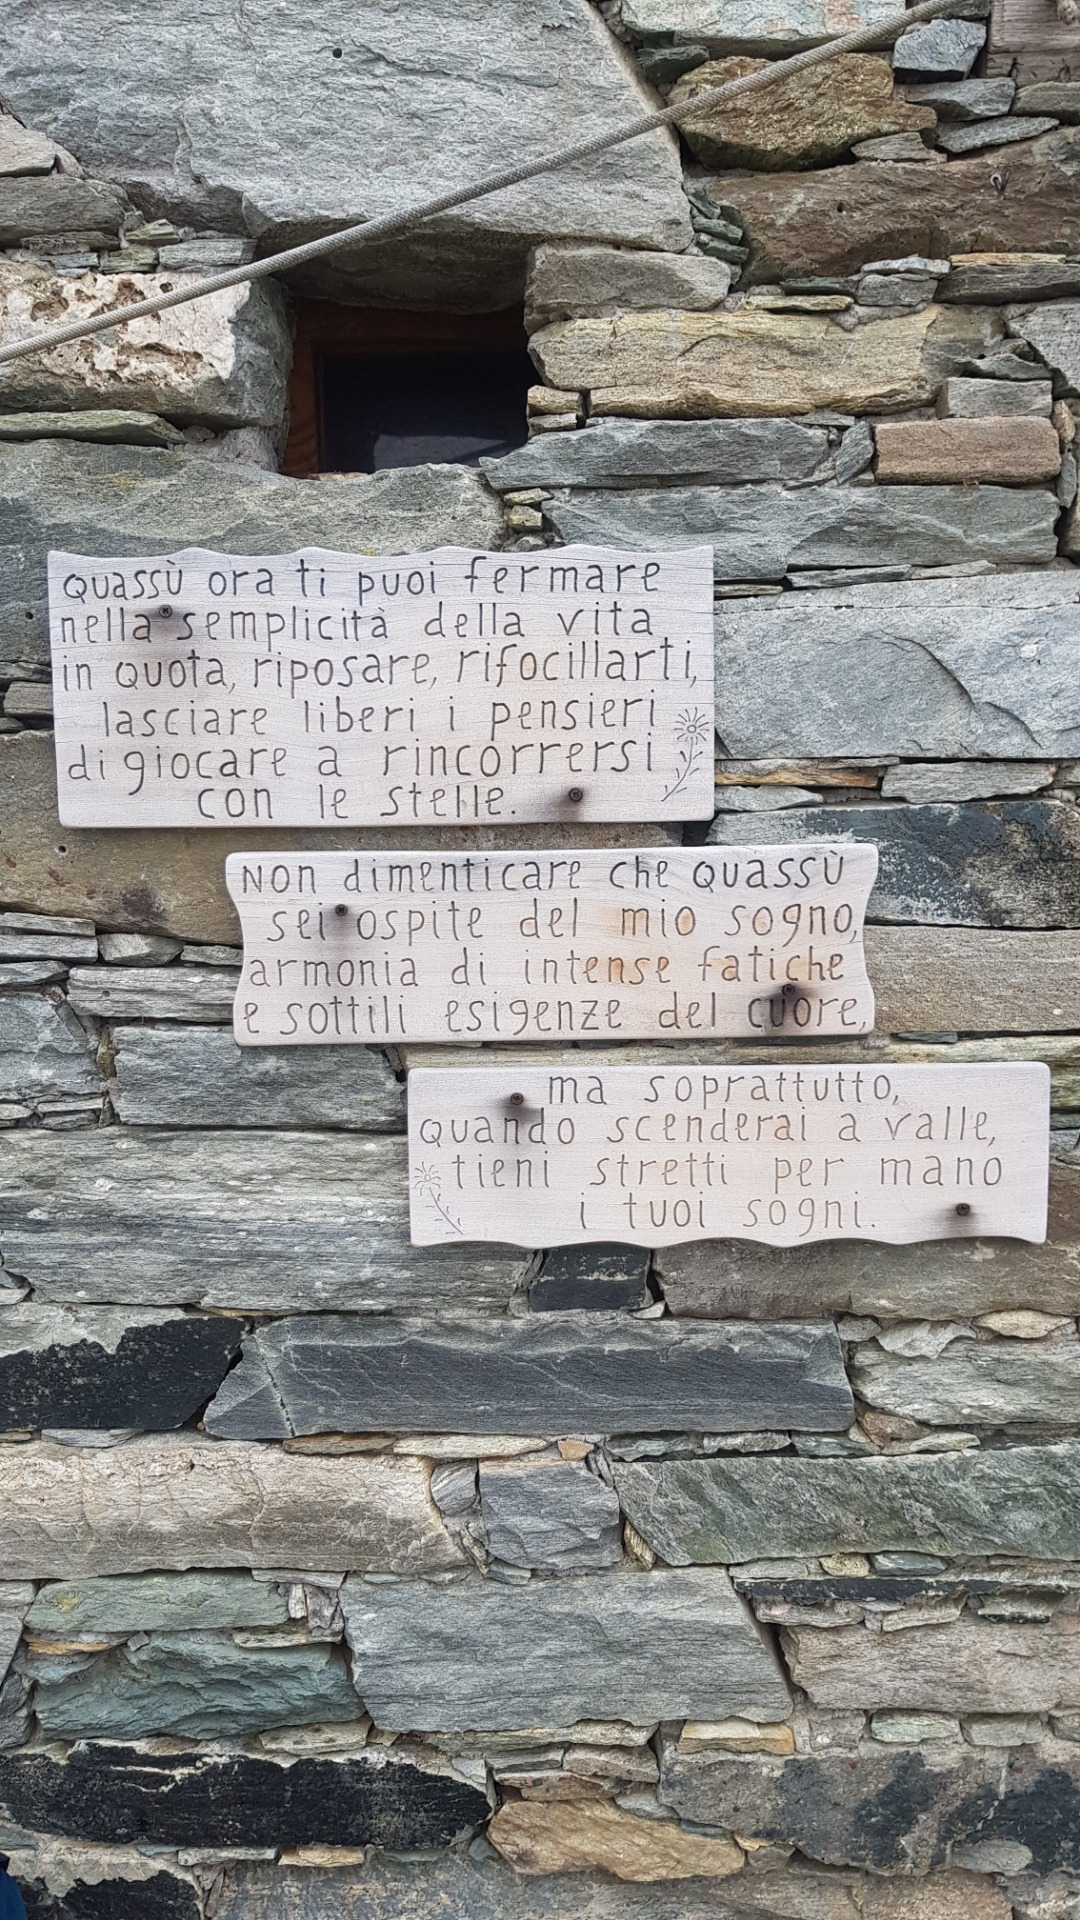 Quassù ora ti puoi fermare
nella semplicità della vita
in quota, riposare, rifocillarti,
lasciare liberi i pensieri
di giocare a rincorrersi
con le stelle.
Non dimenticare che quassù
sei ospite del mio sogno,
armonia di intense fatiche
e sottili esigenze del cuore,
ma soprattutto,
quando scenderai a valle,
tieni stretti per mano
i tuoi sogni.